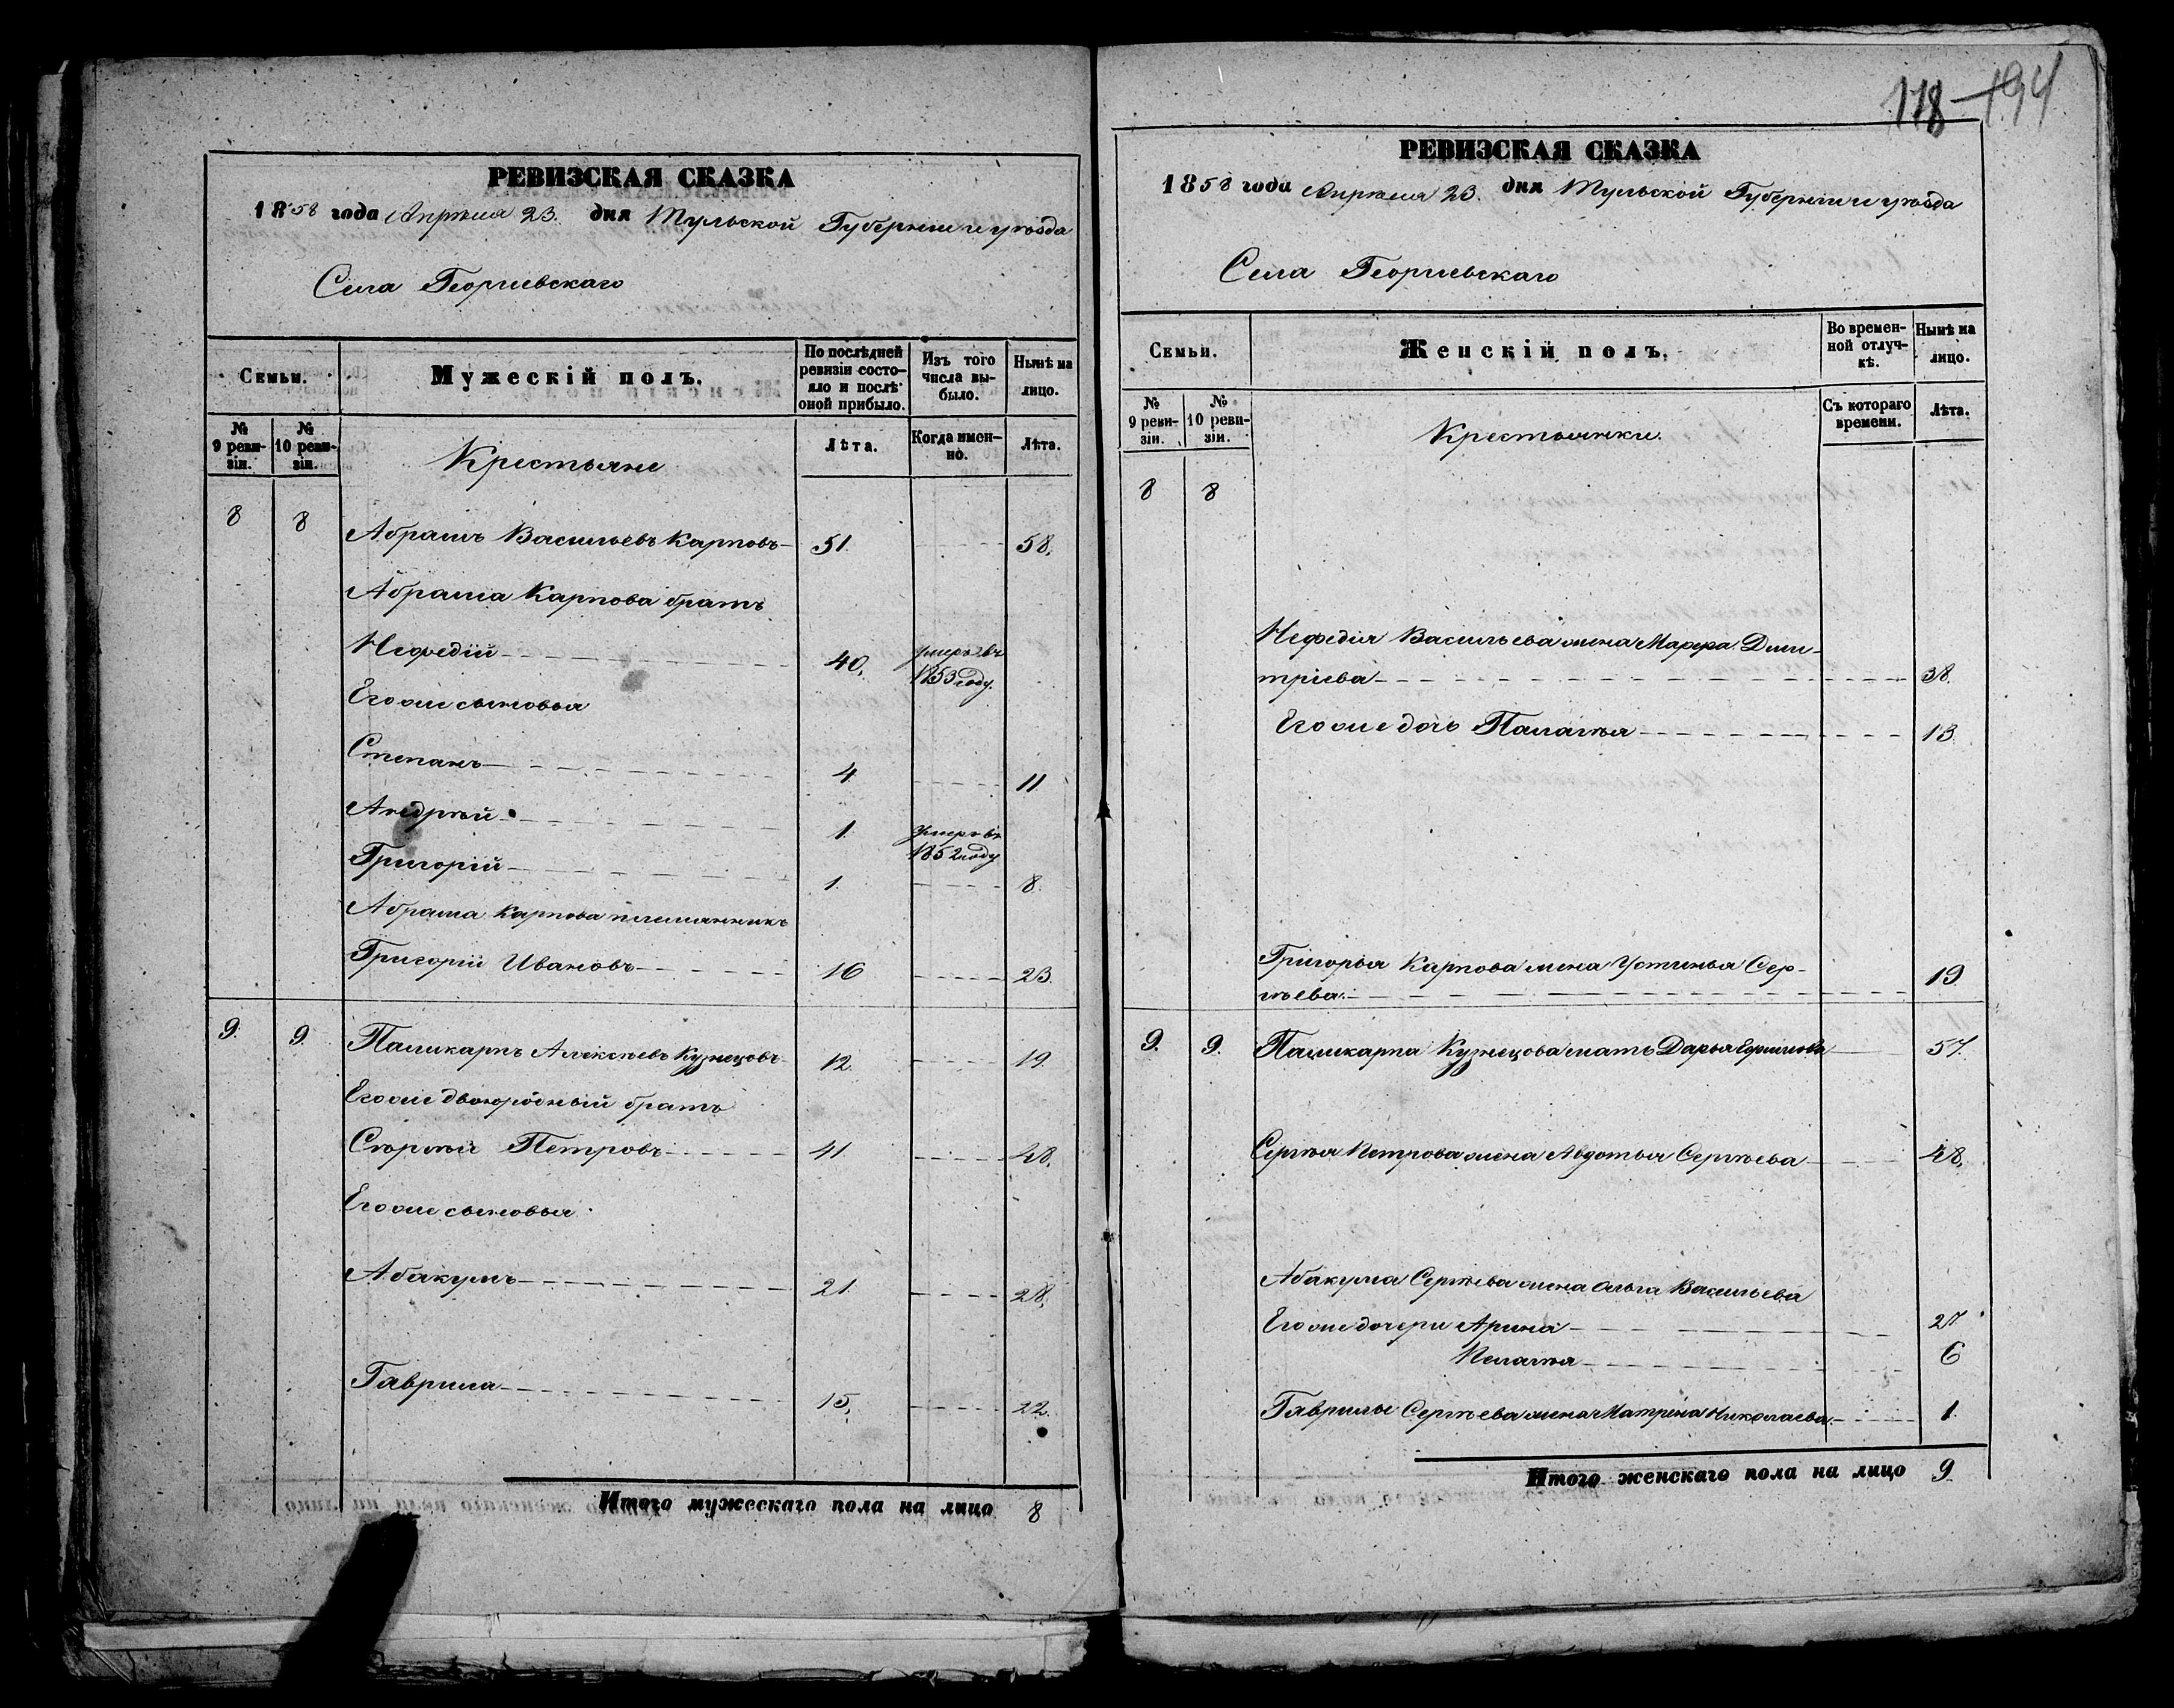 РЕВИЗСКАЯ СКАЗКА
1858 года Апрѣля 23. дня Тульской Губернии и уѣзда
Села Георгиевскаго
Семьи.
Мужескій полъ.
По послѣдней ревизіи состояло и послѣ оной прибыло.
Изъ того числа выбыло.
Нынѣ на лицо.
№ 9 ревизіи.
№ 10 ревизіи.
Крестьяне
Лѣта.
Когда именно.
Лѣта.
8 8 Абрамъ Васильевъ Карповъ 51. 58.
Абрама Карпова братъ
Нефедій 40. умеръ въ 1853 году.
Его же сыновья
Степанъ 4. 11
Андрѣй 1. умеръ въ 1852 году
Григорій 1. 8.
Абрама Карпова племянникъ
Григорій Ивановъ 16 23.
9. 9. Паликарпъ Алексѣевъ Кузнецовъ 12. 19.
Его же двоюродный братъ
Сѣргѣй Петровъ 41 48.
Его же сыновья
Абакумъ 21. 28.
Гаврила 15. 22.
Итого мужескаго пола на лицо 8
118 194
РЕВИЗСКАЯ СКАЗКА
1858 года Апрѣля 23. дня Тульской Губернии и уѣзда
Села Георгиевскаго
Семьи.
Женскій полъ.
Во временной отлучкѣ.
Нынѣ на лицо.
№ 9 ревизіи.
№ 10 ревизіи.
Крестьянки.
Съ котораго времени.
Лѣта.
8 8
Нефедія Васильева жена Марфа Дми-
тріева 38.
Его же дочь Палагѣя 13
Григорья Карпова жена Устинья Сер-
гѣева 19
9. 9. Паликарпа Кузнецова мать Дарья Ефимова 57.
Сергѣя Петрова жена Авдотья Сергѣева 48.
Абакума Сергѣева жена Ольга Васильева
Его же дочери Арина 27
Пелагѣя 6
Гаврилы Сергѣева жена Матрена Николаева 1.
Итого женскаго пола на лицо 9.